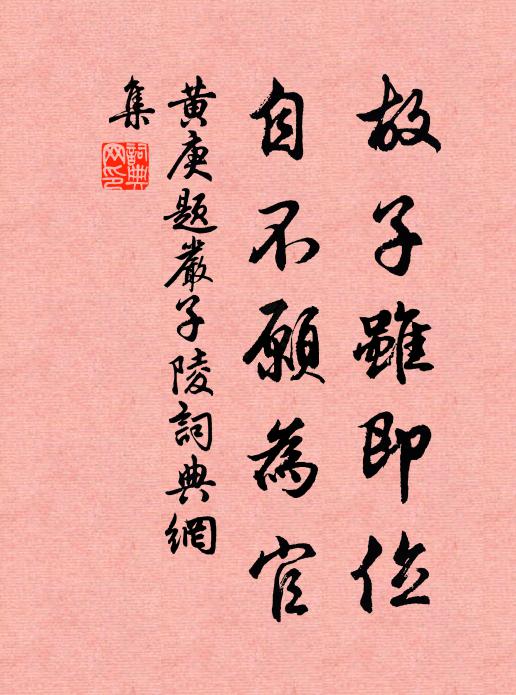 故子雖即位
自不願為官
黄庚題嚴子陵詞典網
集
詞典
网印